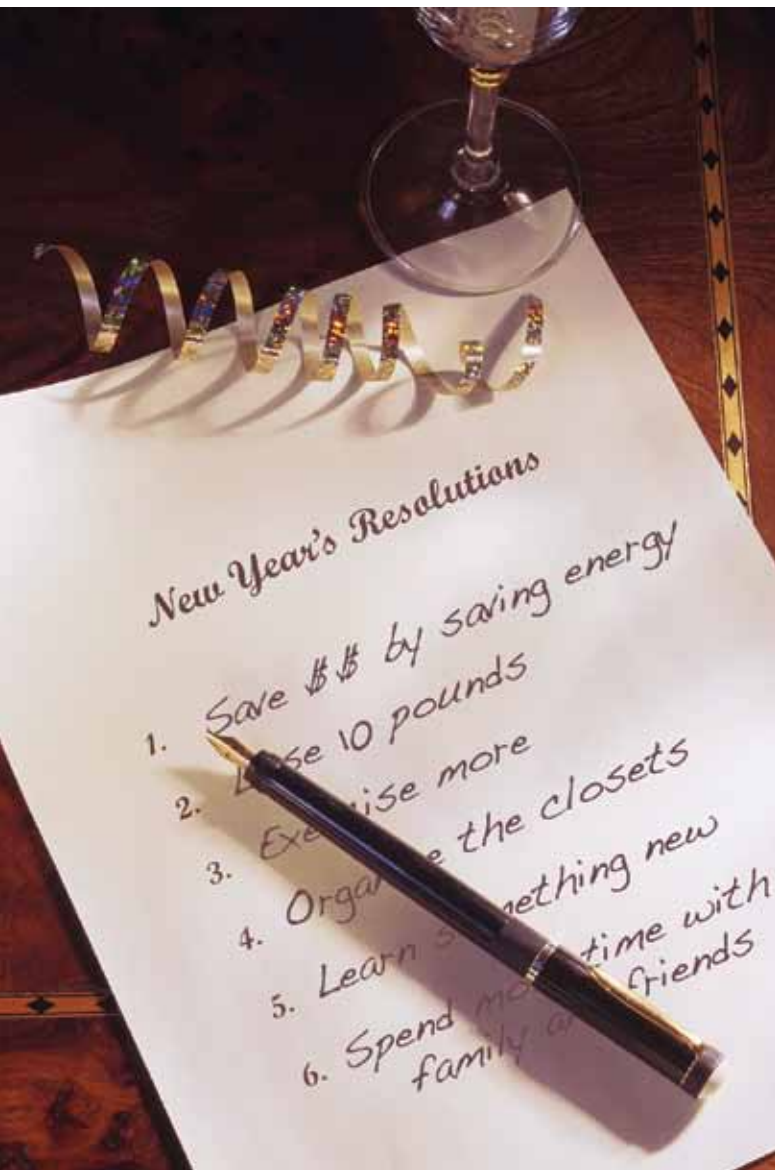 New Year's Resolutions
1. Save $$ by saving energy
2. Lose 10 pounds
3. Exercise more
4. Organize the closets
5. Learn something new
6. Spend more time with
family and friends